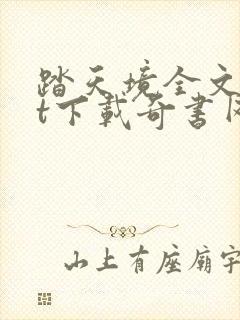 踏天境全文
t下载奇书网
山上有座庙宇